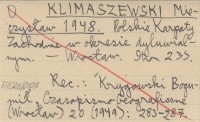 KLIMASZEWSKI Mie-
czysław 1948. Polskie Karpaty
Zachodnie w okresie dyluwial-
nym. — Wrocław. Ss. 233.
Rec.: Kryżowski Bogu-
mił Czasopismo Geograficzne
(Wrocław) 20 (1949): 283-287.